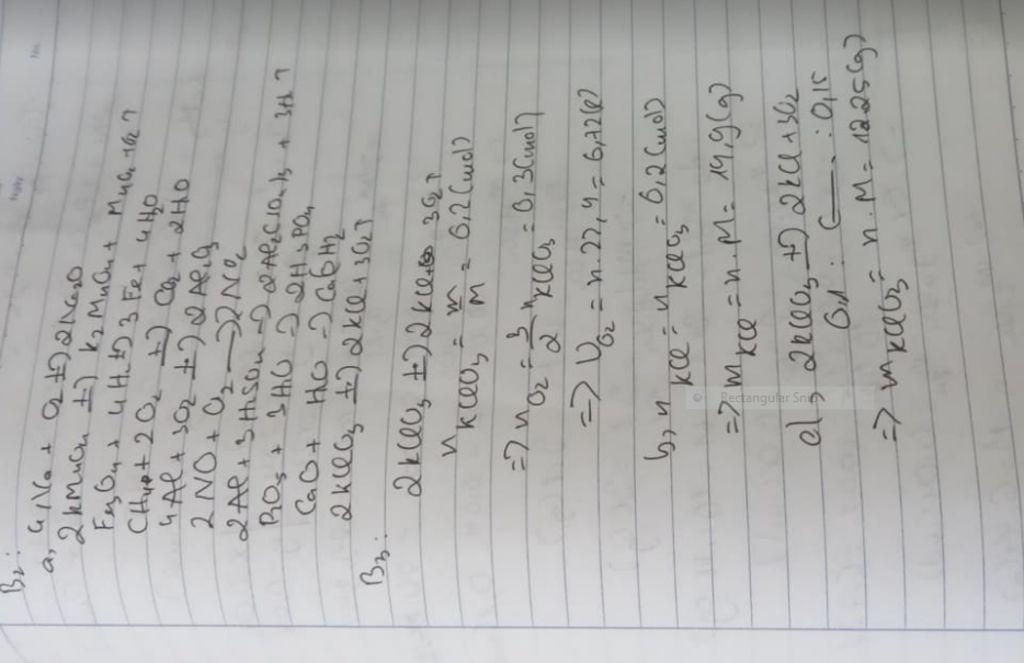 B2:
a, 4Na + O2 t°→ 2Na2O
2KMnO4 t°→ K2MnO4 + MnO2 + O2↑
Fe3O4 + 4H2 t°→ 3Fe + 4H2O
CH4 + 2O2 t°→ CO2 + 2H2O
4Al + 3O2 t°→ 2Al2O3
2NO + O2 → 2NO2
2Al + 3H2SO4 → Al2(SO4)3 + 3H2↑
P2O5 + 3H2O → 2H3PO4
CaO + H2O → Ca(OH)2
2KClO3 t°→ 2KCl + 3O2↑
B3:
2KClO3 t°→ 2KCl + 3O2↑
nKClO3 = m/M = 0,2(mol)
=> nO2 = 3/2 nKClO3 = 0,3(mol)
=> VO2 = n.22,4 = 6,72(l)
b, nKCl = nKClO3 = 0,2(mol)
=> mKCl = n.M = 14,9(g)
d, 2KClO3 t°→ 2KCl + 3O2
0,1 : : 0,15
=> mKClO3 = n.M = 12,25(g)
Rectangular Snip